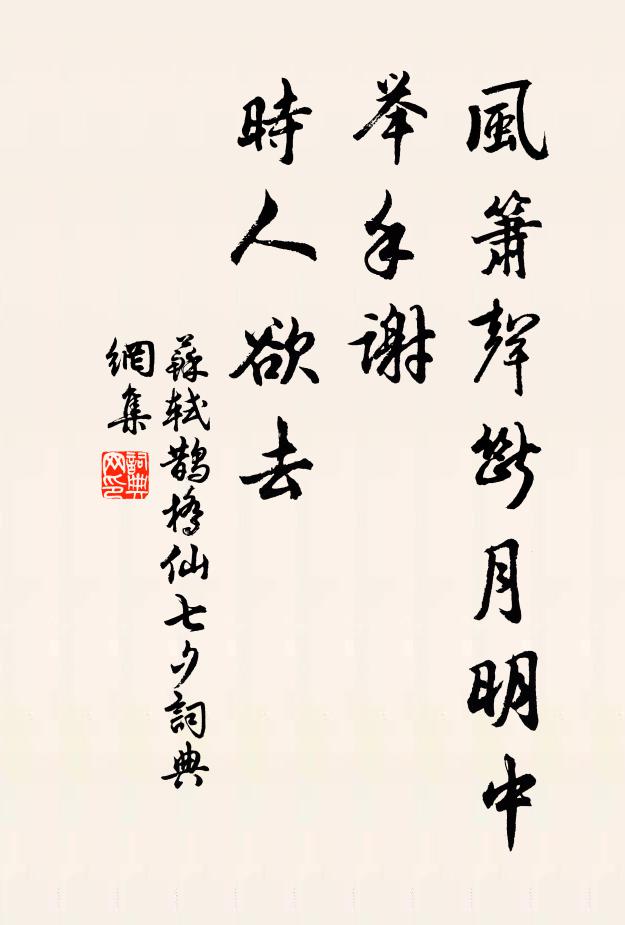 風簫聲斷月明中
举手謝
時人欲去
蘇軾鵲橋仙七夕詞典
網集
詞典
网印